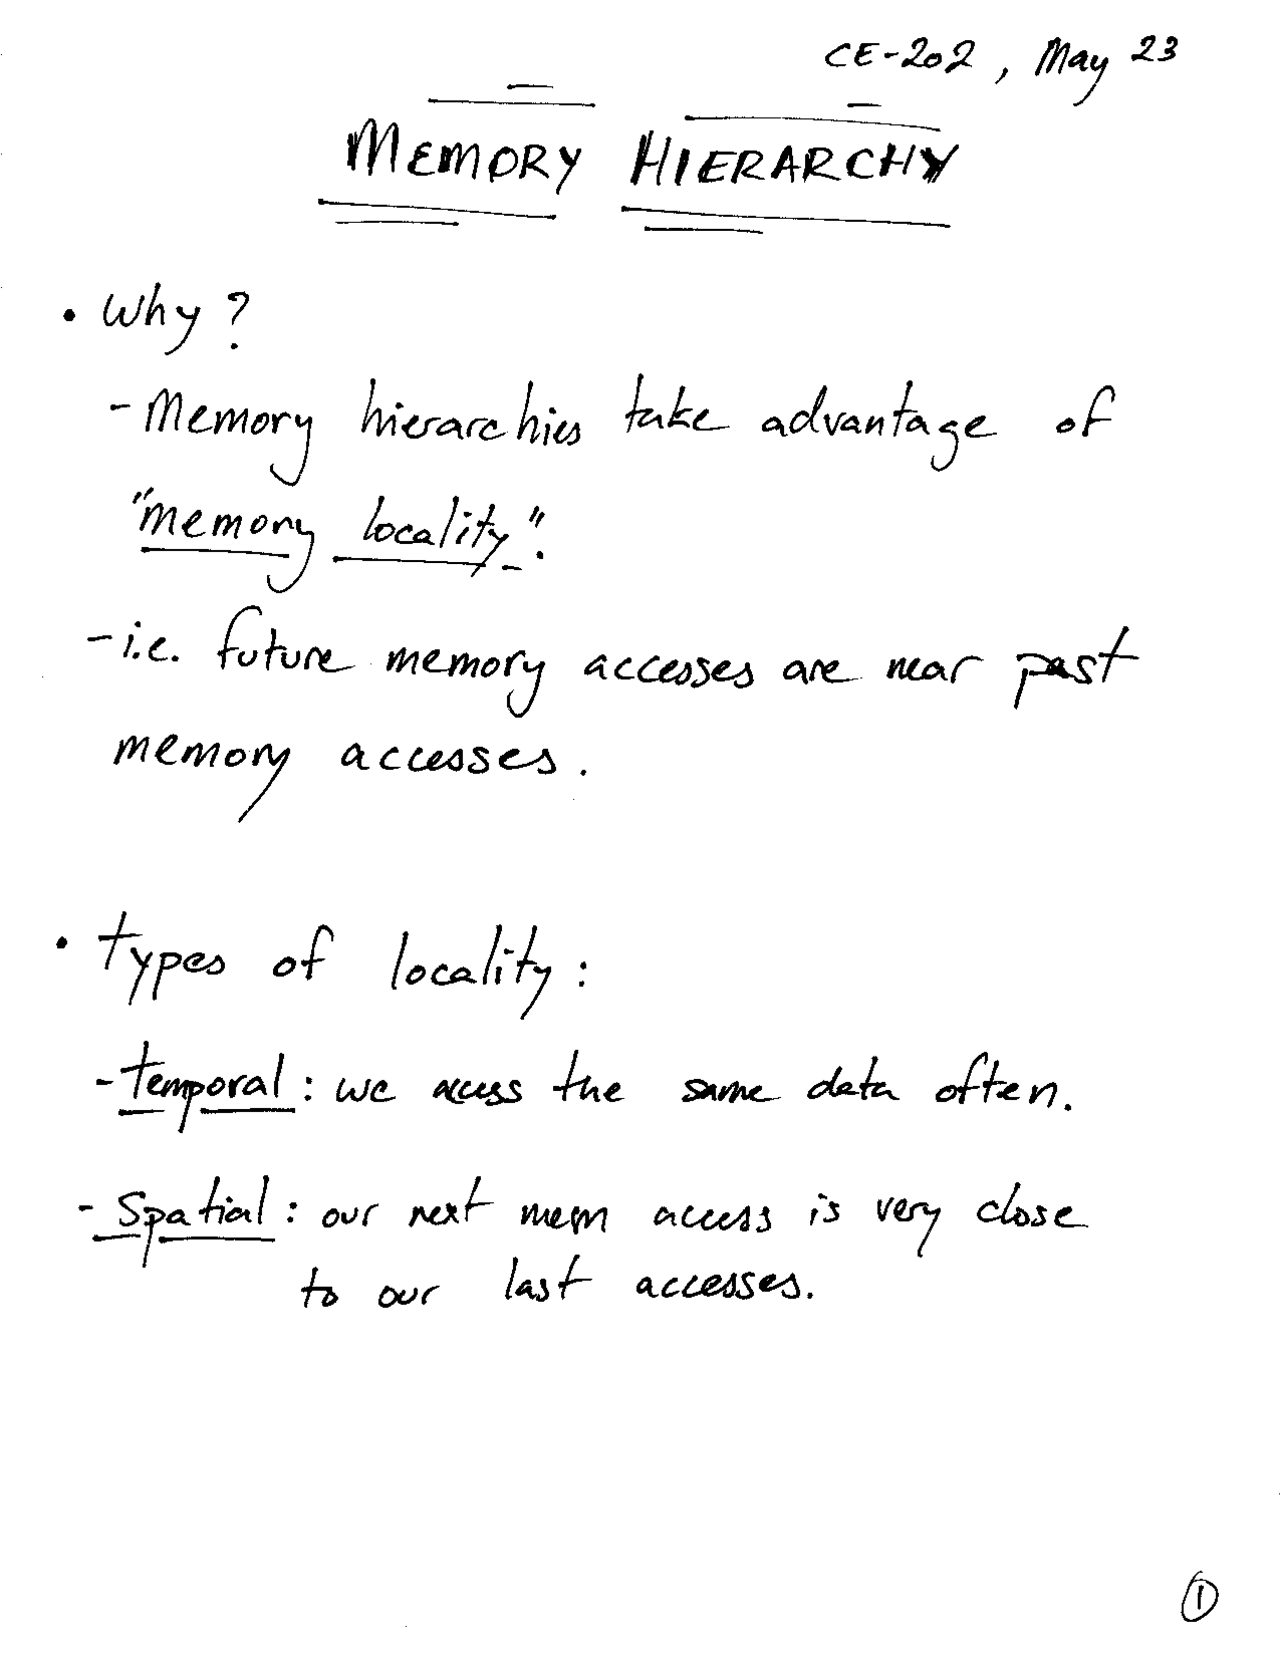 CE-202, May 23
MEMORY HIERARCHY
• Why?
- Memory hierarchies take advantage of
"memory locality".
- i.e. future memory accesses are near past
memory accesses.
• types of locality:
- temporal: we access the same data often.
- Spatial: our next mem access is very close
to our last accesses.
1